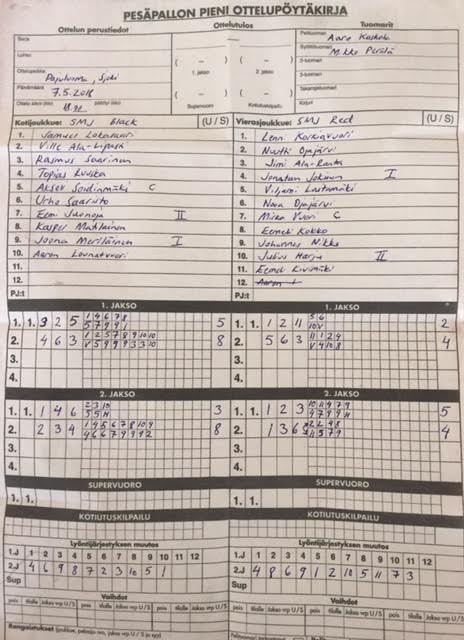 PESÄPALLON PIENI OTTELUPÖYTÄKIRJA
Ottelun perustiedot Ottelutulos Tuomarit
Sarja
Lohko
Ottelupaikka Pajuluoma, Sjoki
Päivämäärä 7.5.2018
Ottelu alkoi (klo) päättyi (klo)
18.00
( – ) ( – )
1. jakso 2. jakso
( – ) ( – )
Supervuoro Kotiutuskilpailu
Pelituomari Aaro Koskela
Syöttötuomari Mikko Perälä
2-tuomari
3-tuomari
Takarajatuomari
Kirjuri
Kotijoukkue: SMJ Black (U / S)
1.
2. Ville Ala-
3. Rasmus Saarinen
4. Topias
5. Aksel Soidinmäki C
6. Urho Saaristo
7. Eemi II
8. Kasper Matilainen
9. Joona Meriläinen I
10. Aaron
11.
12.
PJ:t
Vierasjoukkue: SMJ Red (U / S)
1. Lenni Korkiavuori
2. Ojajärvi
3. Jimi Ala-Ranta
4. Jonatan Jokinen I
5. Viljami Lastumäki
6. Nooa Ojajärvi
7. Miska Vuori C
8. Eemeli Kokko
9. Johannes Nikko
10. Julius Harju II
11. Eemeli Kivimäki
12. Aaron L
PJ:t
1. JAKSO
1. 1. 3 2 5 1 4 6 7 8 5
5 7 9 9 1
2. 4 6 3 1 2 5 7 8 9 10 10 8
V 5 9 9 9 3 3 10
3.
4.
1. JAKSO
1. 1. 1 2 11 5 6 2
10 V
2. 5 6 3 11 1 2 4 4
V 4 10 8
3.
4.
2. JAKSO
1. 1. 1 4 6 2 3 10 3
5 5
2. 2 3 4 1 4 5 6 7 8 10 9 8
4 6 6 7 9 9 9 2
3.
4.
2. JAKSO
1. 1. 1 2 3 10 11 4 7 9 5
4 7 9 9 11
2. 1 3 6 2 2 4 8 4
11 5 7 9
3.
4.
SUPERVUORO
1. 1.
SUPERVUORO
1. 1.
KOTIUTUSKILPAILU
KOTIUTUSKILPAILU
Lyöntijärjestyksen muutos
1.J 1 2 3 4 5 6 7 8 9 10 11 12
2.J 4 6 9 8 7 2 3 10 5 1
Sup
Lyöntijärjestyksen muutos
1.J 1 2 3 4 5 6 7 8 9 10 11 12
2.J 4 8 6 9 1 2 10 5 11 7 3
Sup
Vaihdot
pois tilalle Jakso vrp U / S pois tilalle Jakso vrp U / S
Vaihdot
pois tilalle Jakso vrp U / S pois tilalle Jakso vrp U / S
Rangaistukset (joukkue, pelaaja nro, jakso vrp U / S ja syy)